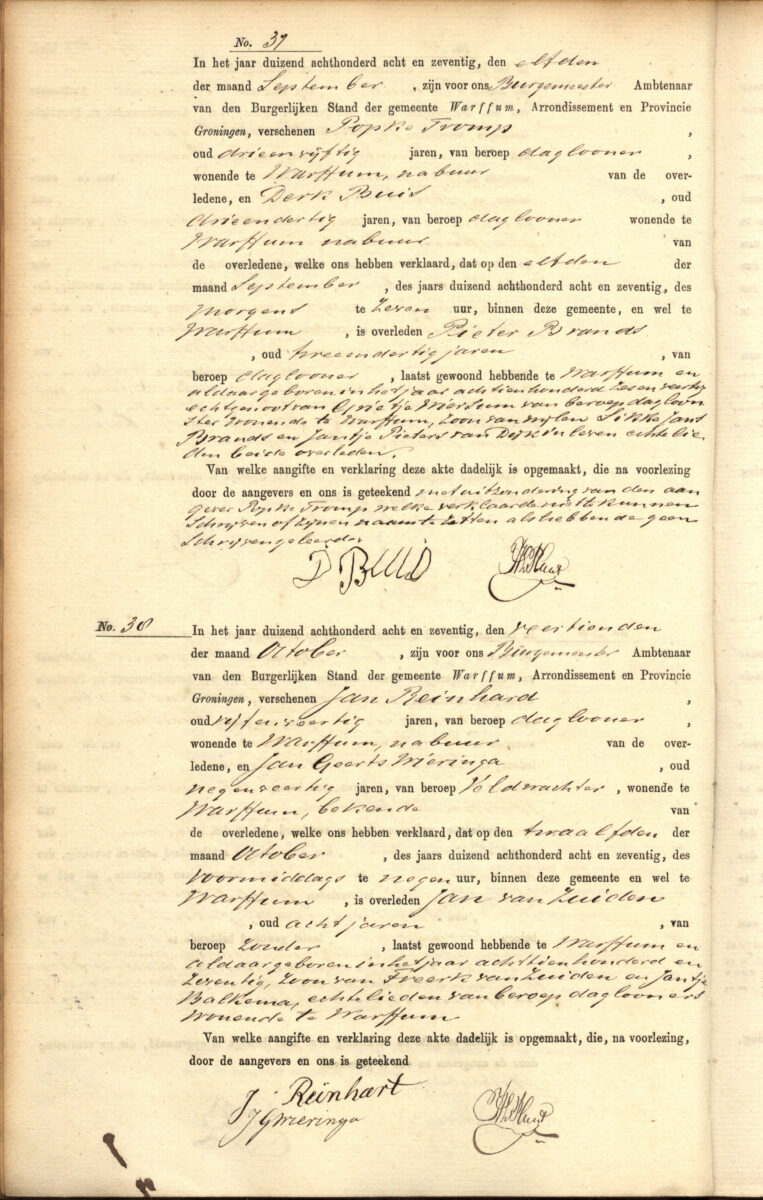 No. 37
In het jaar duizend achthonderd acht en zeventig, den elfden
der maand September , zijn voor ons Burgemeester Ambtenaar
van den Burgerlijken Stand der gemeente Warffum, Arrondissement en Provincie
Groningen, verschenen Popke Tromp ,
oud drieenvijftig jaren, van beroep daglooner ,
wonende te Warffum, nabuur van de over-
ledene, en Derk Buis , oud
drieendertig jaren, van beroep daglooner wonende te
Warffum nabuur van
de overledene, welke ons hebben verklaard, dat op den elfden der
maand September , des jaars duizend achthonderd acht en zeventig, des
morgens te zeven uur, binnen deze gemeente, en wel te
Warffum , is overleden Pieter Brands
, oud tweeendertig jaren , van
beroep daglooner , laatst gewoond hebbende te Warffum en
aldaar geboren in het jaar achtienhonderd zesenveertig
echtgenoot van Grietje Wiersum van beroep dagloon
ster wonende te Warffum, zoon van wijlen Sikke Jans
Brands en Jantje Pieters van Dijk in leven echtelie
den beide overleden.
Van welke aangifte en verklaring deze akte dadelijk is opgemaakt, die na voorlezing
door de aangevers en ons is geteekend met uitzondering van den aan
gever Popke Tromp welke verklaarde niet te kunnen
schrijven of zijnen naam te zetten als hebbende geen
schrijven geleerd.
D Buis
No. 38
In het jaar duizend achthonderd acht en zeventig, den veertienden
der maand October , zijn voor ons Burgemeester Ambtenaar
van den Burgerlijken Stand der gemeente Warffum, Arrondissement en Provincie
Groningen, verschenen Jan Reinhard ,
oud vijfenveertig jaren, van beroep daglooner ,
wonende te Warffum, nabuur van de over-
ledene, en Jan Geerts Wieringa , oud
negenveertig jaren, van beroep Veldwachter , wonende te
Warffum, bekende van
de overledene, welke ons hebben verklaard, dat op den twaalfden der
maand October , des jaars duizend achthonderd acht en zeventig, des
voormiddags te negen uur, binnen deze gemeente en wel te
Warffum , is overleden Jan van Zuiden
, oud acht jaren , van
beroep zonder , laatst gewoond hebbende te Warffum en
aldaar geboren in het jaar achttienhonderd en
zeventig, zoon van Freerk van Zuiden en Jantje
Balkema, echtelieden van beroep daglooners
wonende te Warffum
Van welke aangifte en verklaring deze akte dadelijk is opgemaakt, die, na voorlezing,
door de aangevers en ons is geteekend
J. Reinhart
J G Wieringa